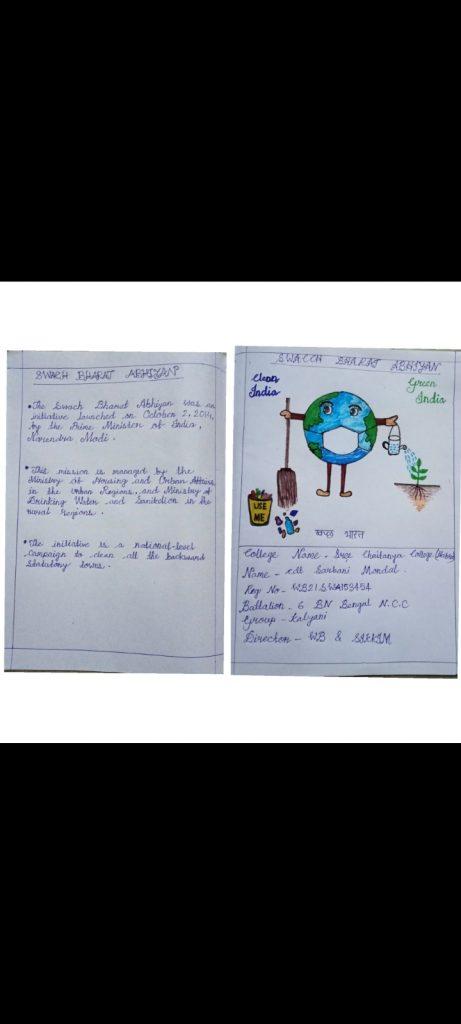 SWACH BHARAT ABHIYAN
• The Swach Bharat Abhiyan was an
initiative launched on October 2, 2014,
by the Prime Minister of India,
Narendra Modi.
• This mission is managed by the
Ministry of Housing and Urban Affairs
in the urban Regions, and Ministry of
Drinking Water and Sanitation in the
rural Regions.
• The initiative is a national-level
campaign to clean all the backward
statutory towns.
SWACCH BHARAT ABHIYAN
Clean
India
Green
India
USE
ME
स्वच्छ भारत
College Name - Sree Chaitanya College
Name - cdt Sarbani Mondal.
Reg No - WB21SWA153454
Battalion - 6 BN Bengal N.C.C
Group - Kalyani
Direction - WB & SIKKIM